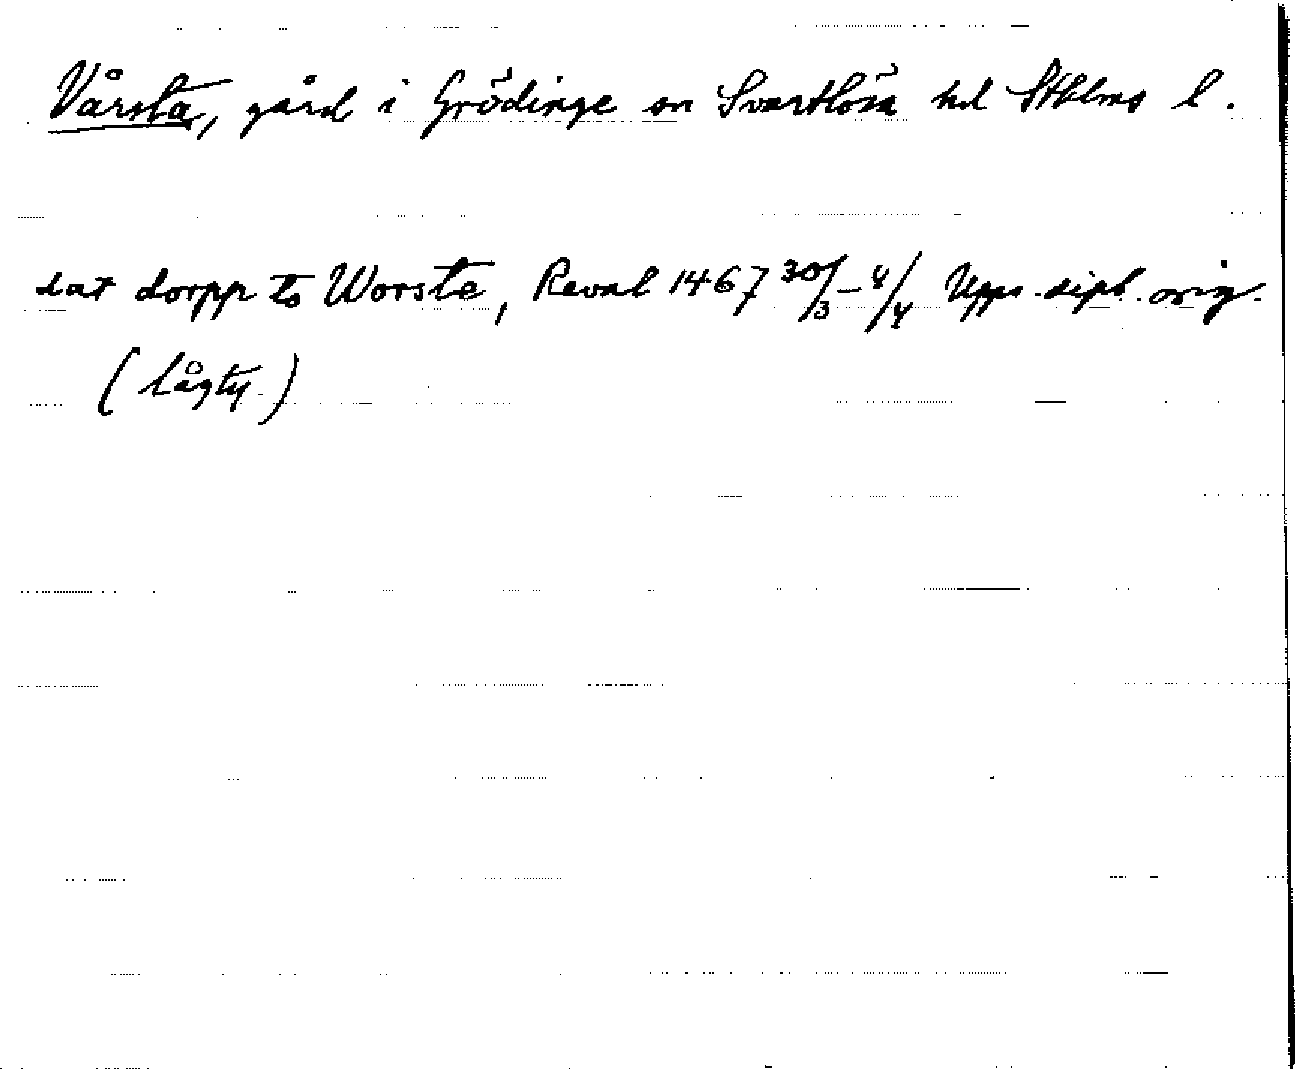 Vårsta, gård i Grödinge sn Svartlösa hd Sthlms l.
dat dorpp to Worste, Reval 1467 30/3–4/4 Upps. dipl. orig.
(lågty.)